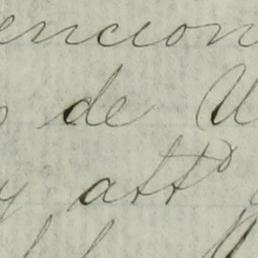 encion
de U
y attº